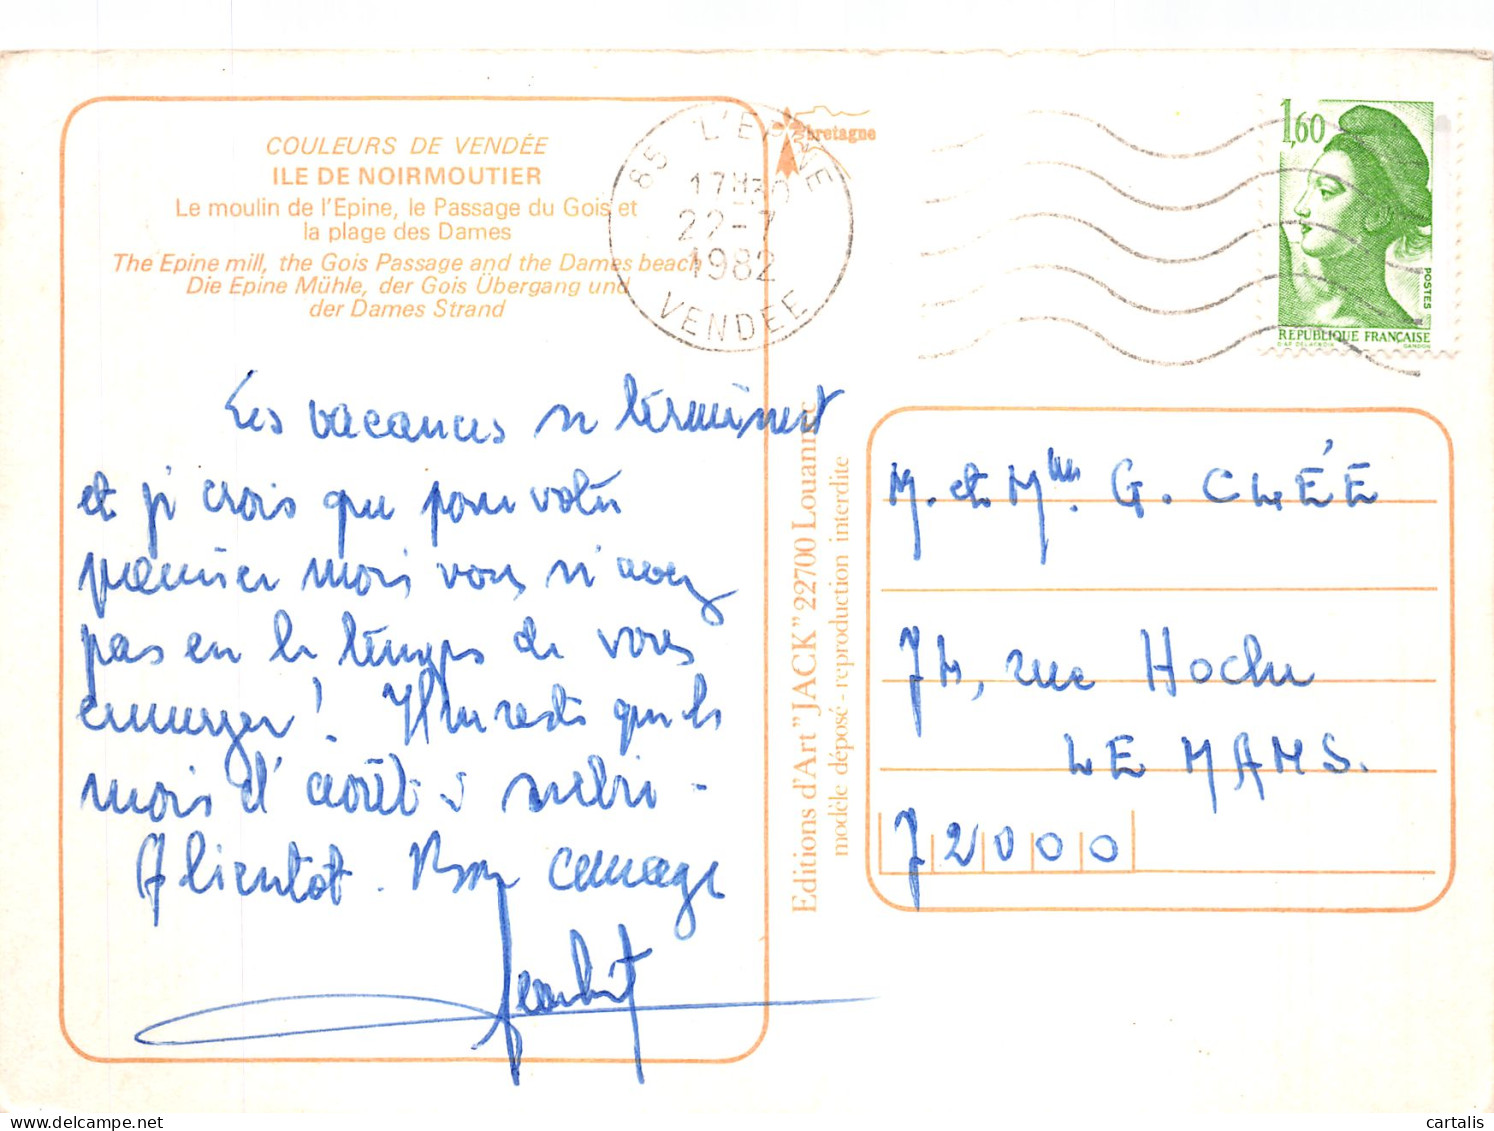 COULEURS DE VENDÉE
ILE DE NOIRMOUTIER
Le moulin de l'Epine, le Passage du Gois et
la plage des Dames
The Epine mill, the Gois Passage and the Dames beach
Die Epine Mühle, der Gois Übergang und
der Dames Strand
Les vacances se terminent
et je crois que pour votre
premier mois vous n'avez
pas eu le temps de vous
ennuyer ! Il ne reste que le
mois d'août à subir -
A bientôt. Bon courage
bretagne
85 L'EPINE
17H30
22-7
1982
VENDEE
1,60
POSTES
REPUBLIQUE FRANÇAISE
D'AP. DELACROIX GANDON
Editions d'Art "JACK" 22700 Louannec
modèle déposé - reproduction interdite
M. et Mme. G. CLÉE
74, rue Hoche
LE MANS.
72000
cartalis